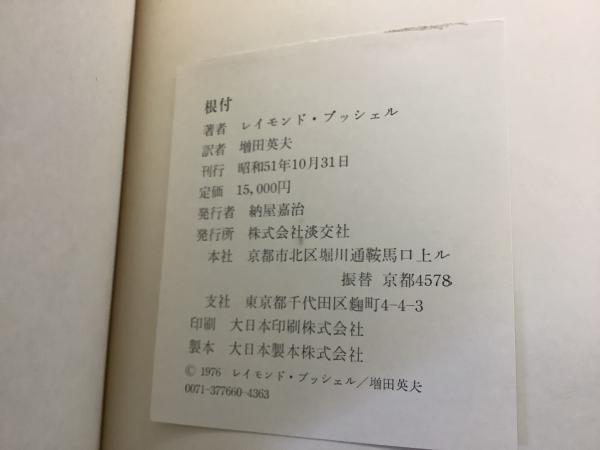 根付
著者 レイモンド・ブッシェル
訳者 増田英夫
刊行 昭和51年10月31日
定価 15,000円
発行者 納屋嘉治
発行所 株式会社淡交社
本社 京都市北区堀川通鞍馬口上ル
振替 京都4578
支社 東京都千代田区麹町4-4-3
印刷 大日本印刷株式会社
製本 大日本製本株式会社
© 1976 レイモンド・ブッシェル/増田英夫
0071-377660-4363